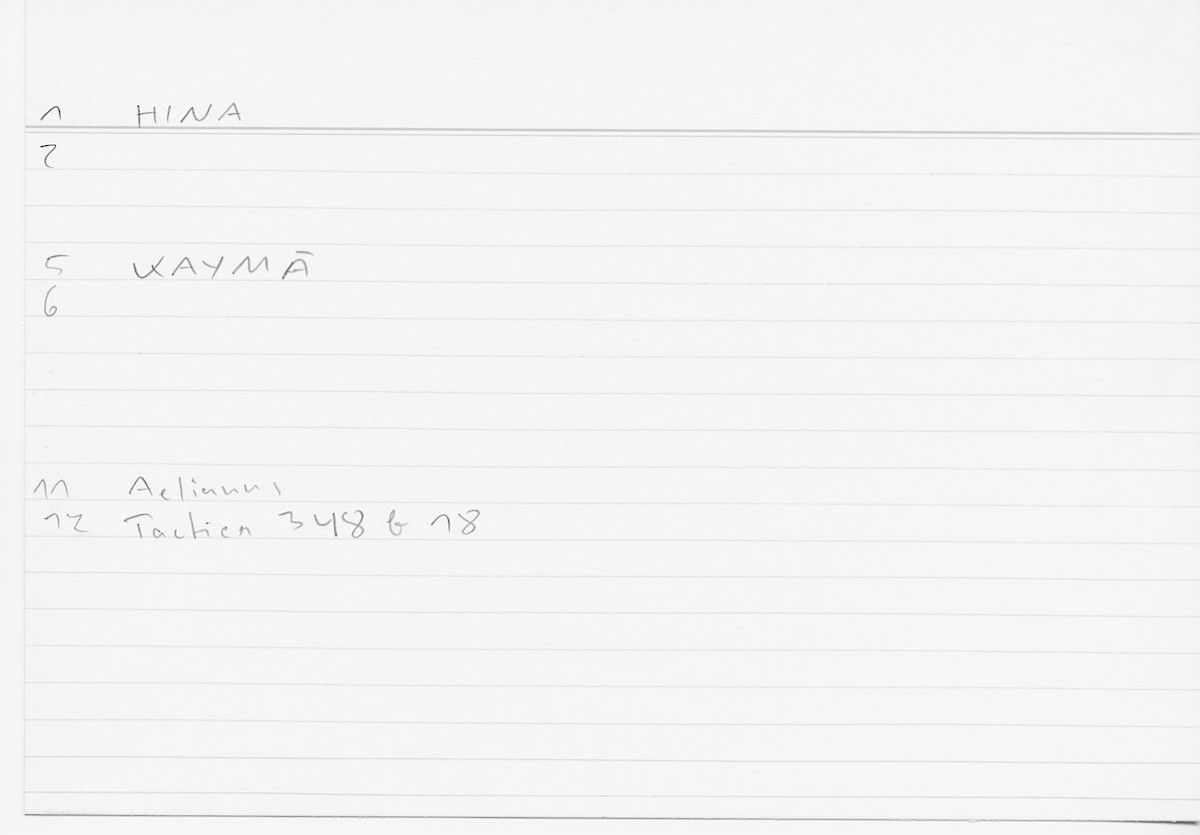 1 HINA
2
5 KAYMĀ
6
11 Aelianus
12 Tactica 348 b 18